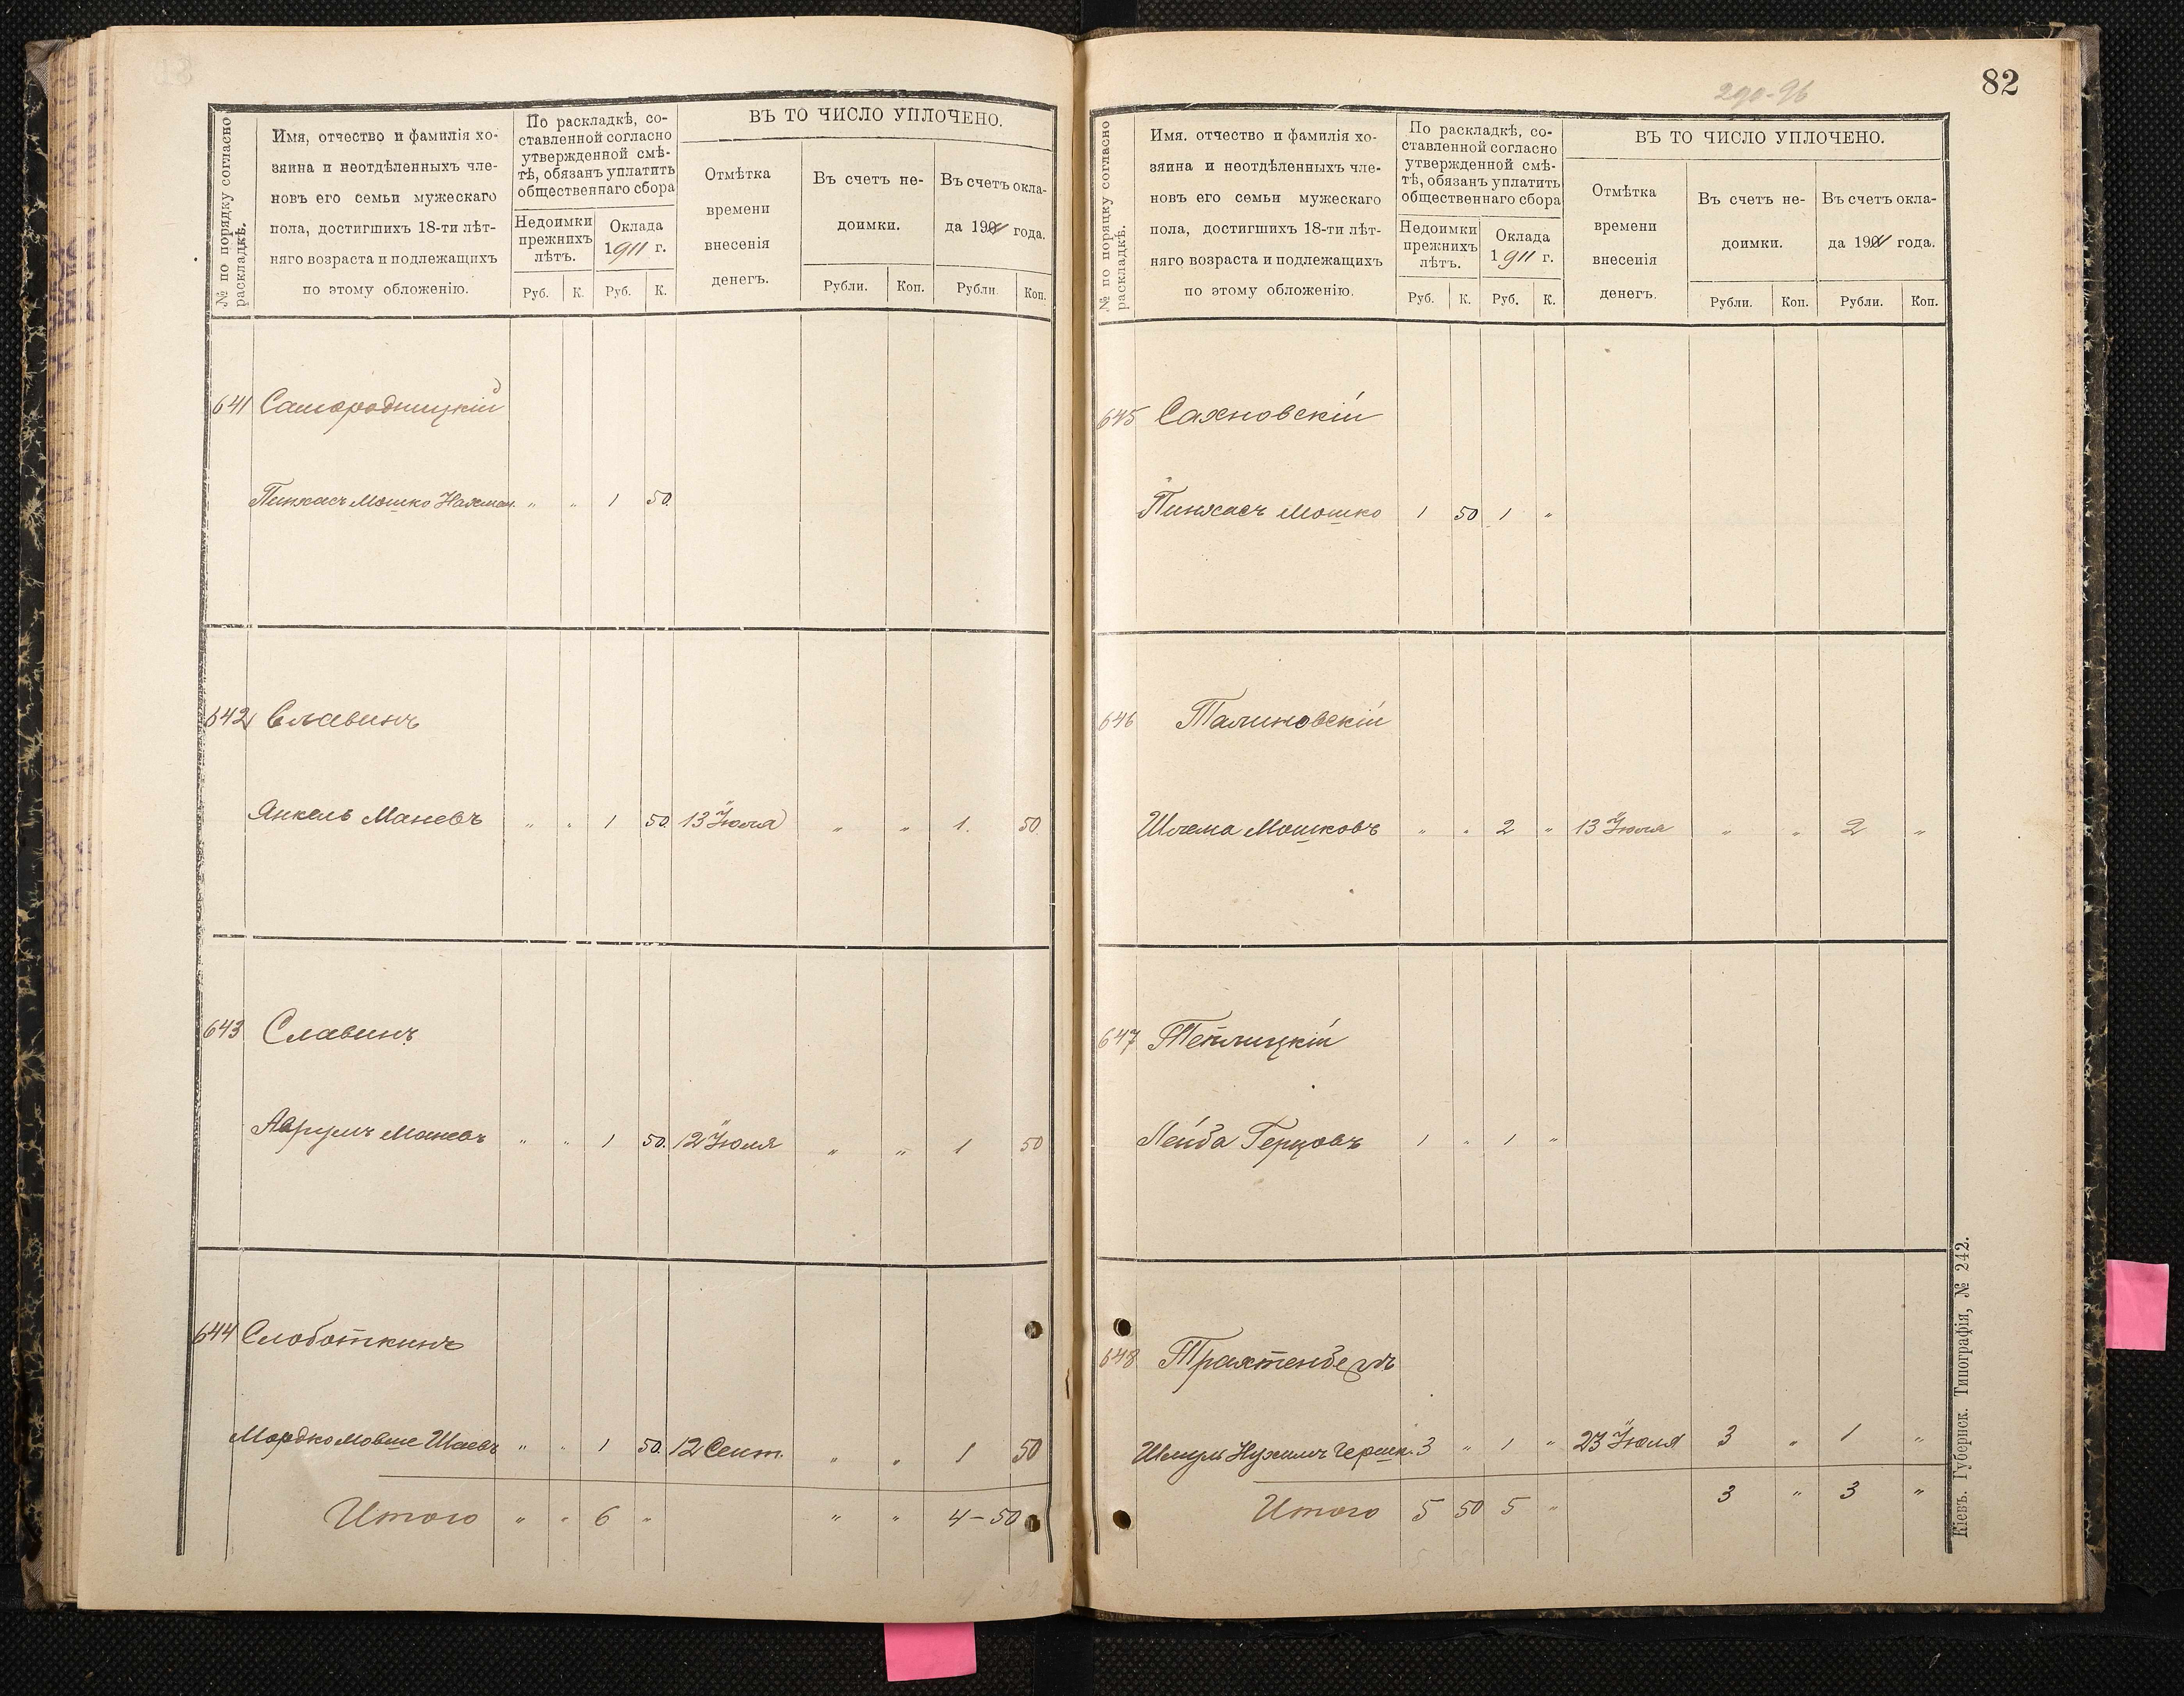 № по порядку согласно раскладкѣ.
Имя, отчество и фамилія хо-
зяина и неотдѣленныхъ чле-
новъ его семьи мужескаго
пола, достигшихъ 18-ти лѣт-
няго возраста и подлежащихъ
по этому обложенію.
По раскладкѣ, со-
ставленной согласно
утвержденной смѣ-
тѣ, обязанъ уплатить
общественнаго сбора
Недоимки
прежнихъ
лѣтъ.
Оклада
1911 г.
Руб. К. Руб. К.
ВЪ ТО ЧИСЛО УПЛОЧЕНО.
Отмѣтка
времени
внесенія
денегъ.
Въ счетъ не-
доимки.
Въ счетъ окла-
да 1911 года.
Рубли. Коп. Рубли Коп.
641 Самородницкій
Пинхасъ Мошко Нахман. " " 1 50.
642 Славинъ
Янкель Маневъ " " 1 50. 13 Іюля " " 1. 50.
643 Славинъ
Аврумъ Маневъ " " 1 50. 12 Іюля " " 1 50
644 Слоботкинъ
Мордко Мовше Шаевъ " " 1 50 12 Сент. " " 1 50
Итого " " 6 " " " 4-50
290-96
82
№ по порядку согласно раскладкѣ.
Имя. отчество и фамилія хо-
зяина и неотдѣленныхъ чле-
новъ его семьи мужескаго
пола, достигшихъ 18-ти лѣт-
няго возраста и подлежащихъ
по этому обложенію.
По раскладкѣ, со-
ставленной согласно
утвержденной смѣ-
тѣ, обязанъ уплатить
общественнаго сбора
Недоимки
прежнихъ
лѣтъ.
Оклада
1911 г.
Руб. К. Руб. К.
ВЪ ТО ЧИСЛО УПЛОЧЕНО.
Отмѣтка
времени
внесенія
денегъ.
Въ счетъ не-
доимки.
Въ счетъ окла-
да 1911 года.
Рубли. Коп. Рубли. Коп.
645 Сахновскій
Пинхасъ Мошко 1 50 1 "
646 Талиновскій
Шлема Мошковъ " " 2 " 13 Іюля " " 2 "
647 Теплицкій
Лейба Герцовъ 1 " 1 "
648 Трахтенбергъ
Шмуль Нухимъ Гершк. 3 " 1 " 23 Іюля 3 " 1 "
Итого 5 50 5 " 3 " 3 "
Кіевъ. Губернск. Типографія, № 242.